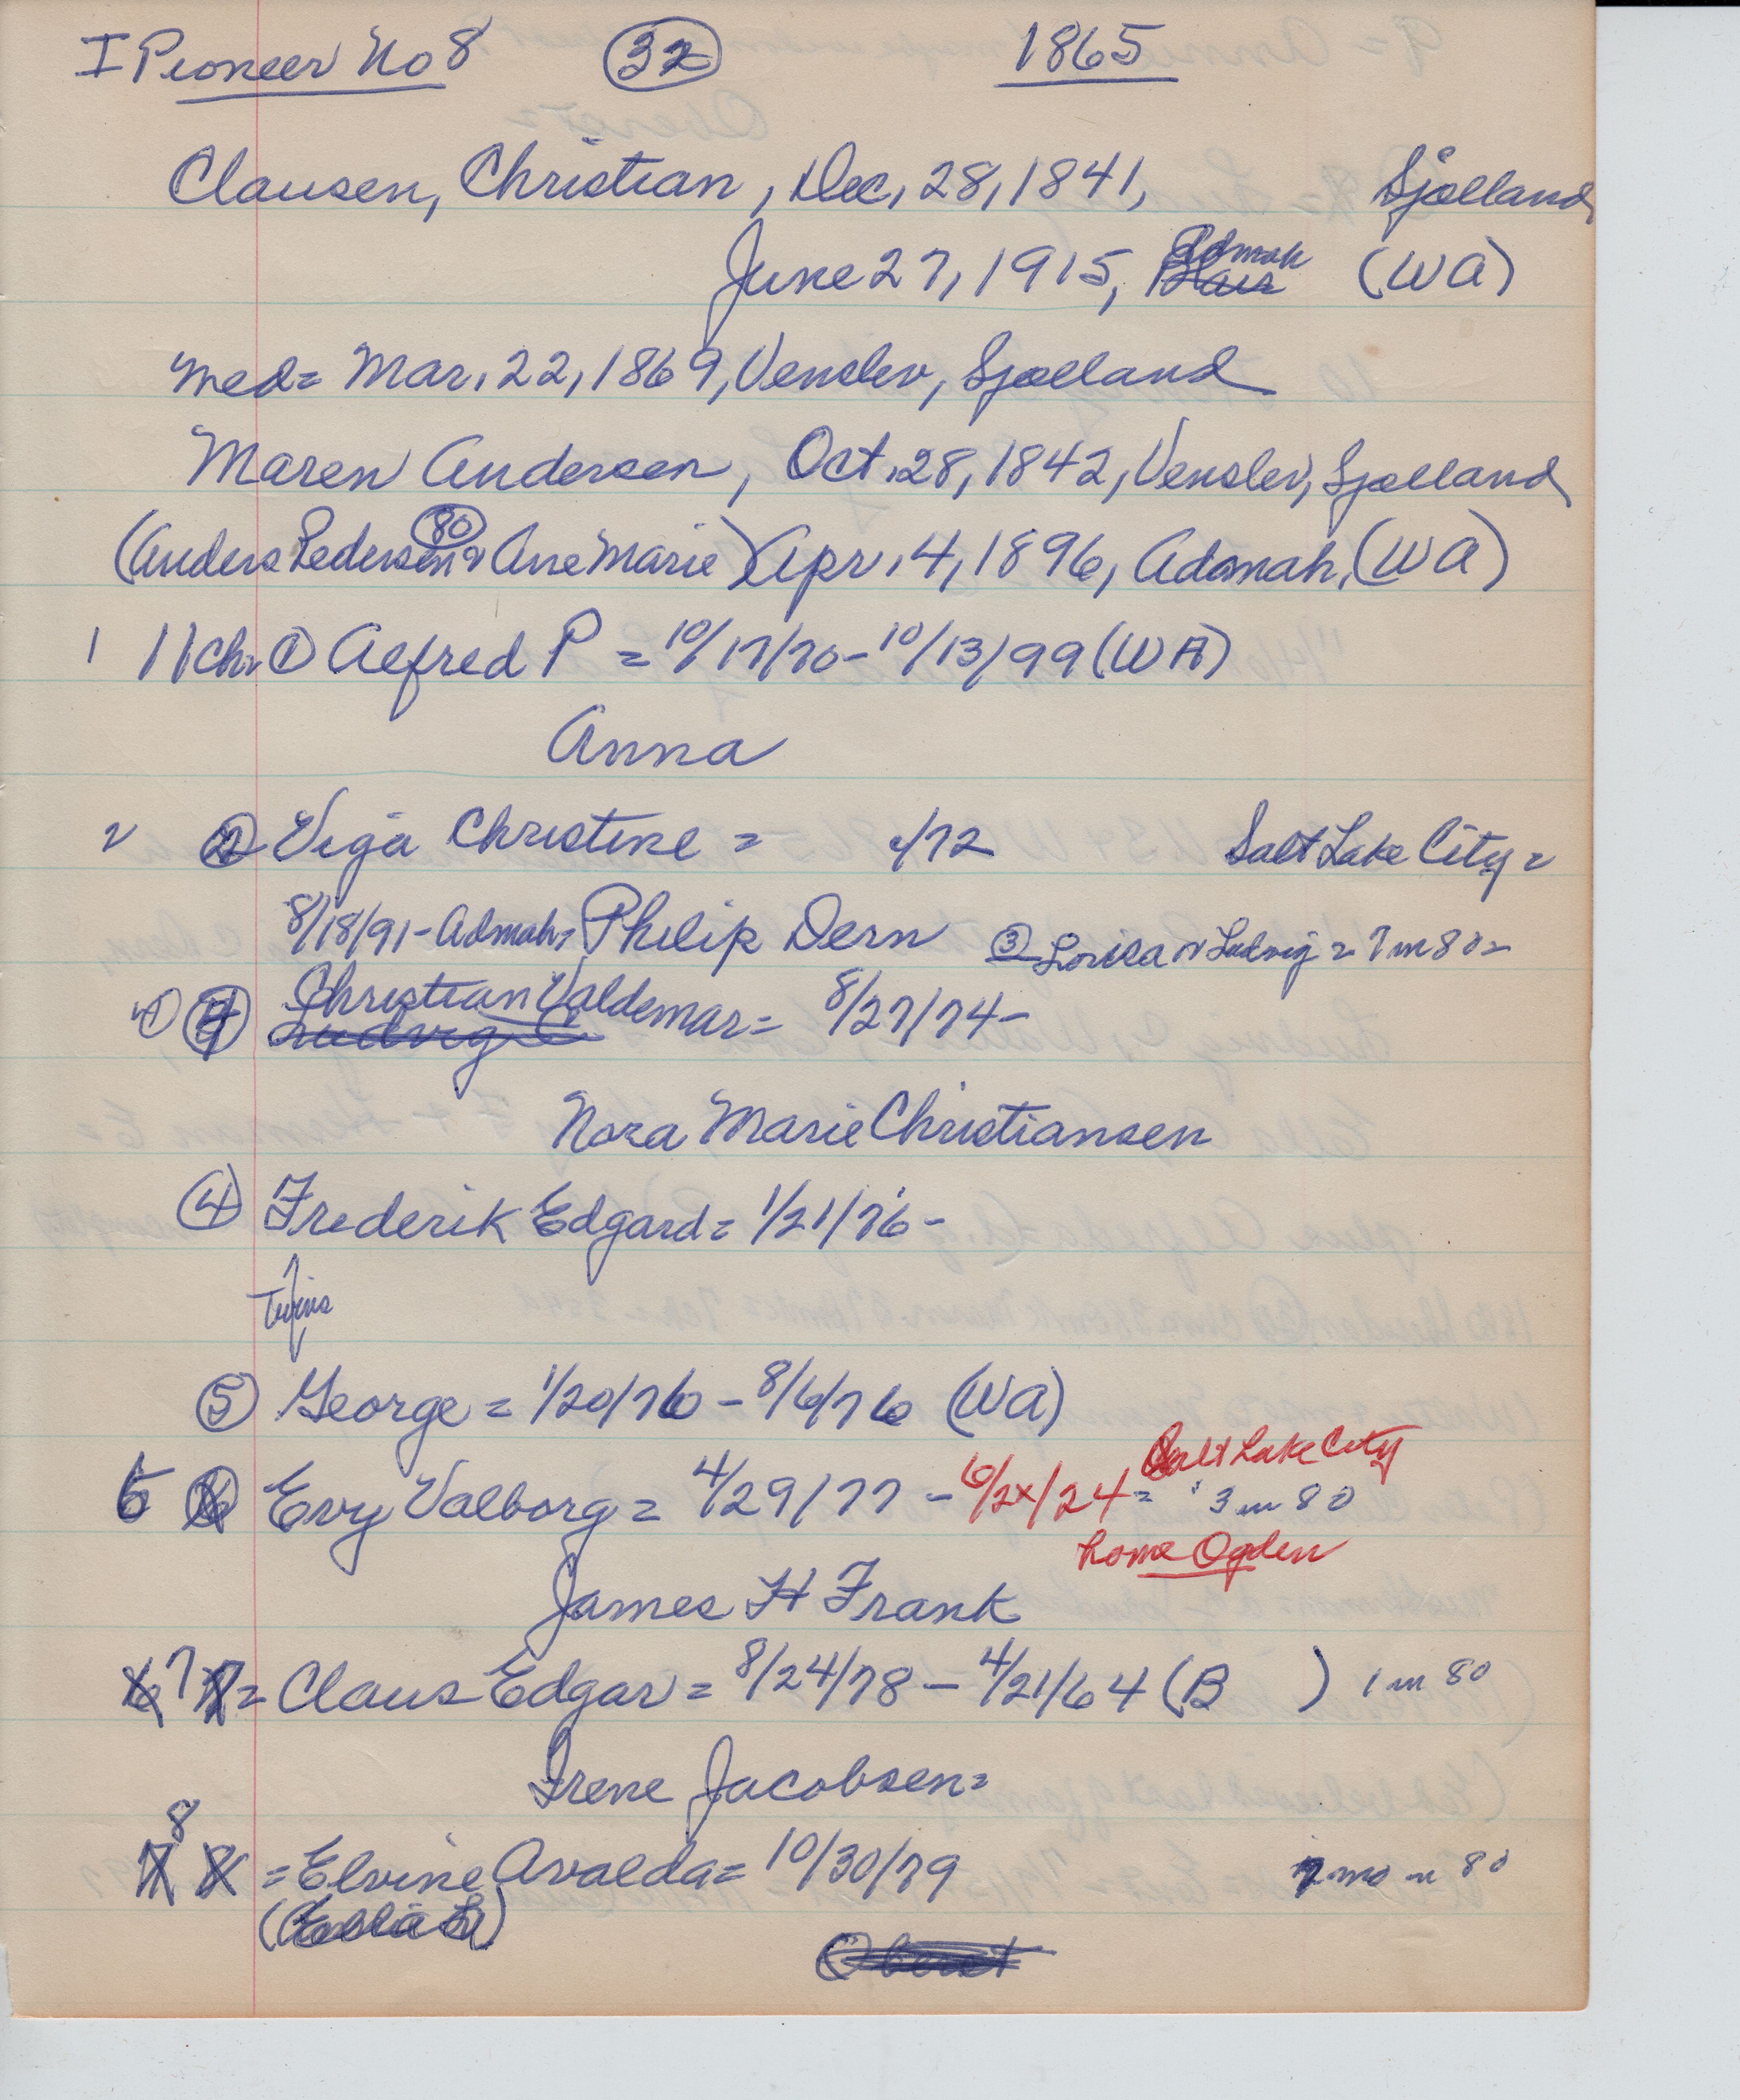 I Pioneer No 8 32 1865
Clausen, Christian, Dec, 28, 1841, Sjælland
Admah
June 27, 1915, Blair (WA)
med= Mar. 22, 1869, Venslev, Sjælland
Maren Andersen, Oct. 28, 1842, Venslev, Sjælland
80
(Anders Pedersen & Ane Marie) Apr. 4, 1896, Adamah, (WA)
1 11 ch. 1 Alfred P = 10/17/70 - 10/13/99 (WA)
Anna
2 2 Viga Christine = /72 Salt Lake City =
8/18/91 - Admah = Philip Dern 3 Ludvig = 7 in 80 =
Christian Valdemar = 8/27/74 -
4 Ludvig C
Nora Marie Christiansen
4 Frederik Edgard = 1/21/76 -
Twins
5 George = 1/20/76 - 8/6/76 (WA)
Salt Lake City
6 6 Evy Valborg = 4/29/77 - 6/2x/24 = 3 in 80
home Ogden
James H Frank
6 7 7 = Claus Edgar = 8/24/78 - 4/21/64 (B ) 1 in 80
Irene Jacobsen =
8
7 8 = Elvine Avalda = 10/30/79 mo in 80